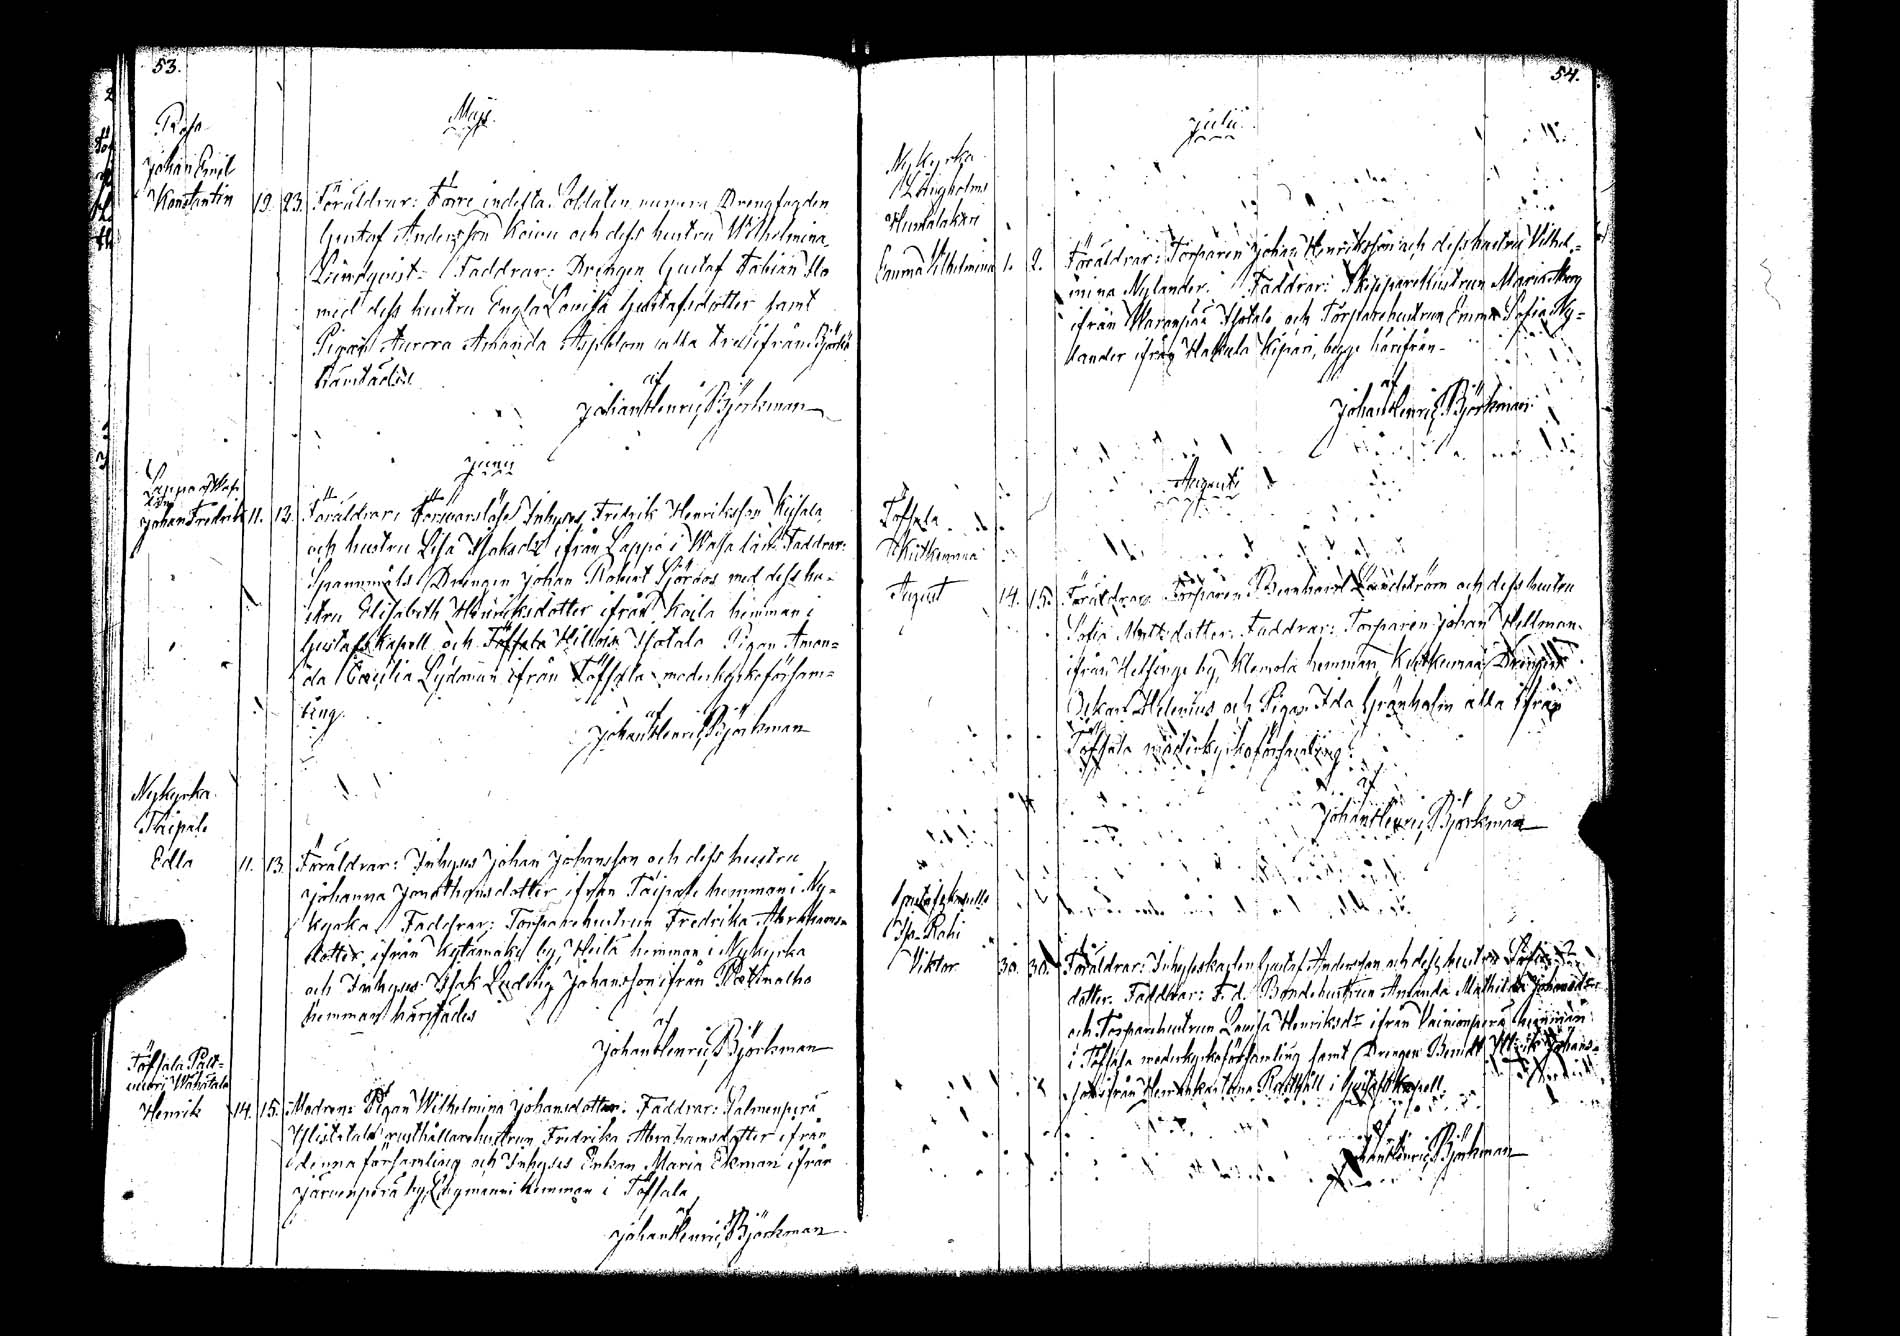 53.
Maji.
Johan Emil
Konstantin 19. 23. Föräldrar: Förre indelta Soldaten numera Drengfogden
Gustaf Andersson Koivu och dess hustru Wilhelmina
Lindqvist. Faddrar: Drengen Gustaf Fabian
med dess hustru Engla Lovisa Gustafsdotter samt
Pigan Aurora Amanda Aspblom alla tre ifrån
härstädes.
af
Johan Henric Björkman
Junii
Lappo
Johan Fredrik 11. 13. Föräldrar: Försvarslöse Inhyses Fredrik Henriksson
och hustru Lisa Isaksdr ifrån Lappo i Wasa län. Faddrar:
Spannmåls Drengen Johan Robert Sjöroos med dess hu-
stru Elisabeth Henriksdotter ifrån Koila hemman i
Gustafs Kapell och Töfsala Isotalo Pigan Aman-
da Cecilia ifrån Töfsala moderkyrkoförsam-
ling.
af
Johan Henric Björkman
Nykyrka
Taipale
Edla 11. 13. Föräldrar: Inhyses Johan Johansson och dess hustru
Johanna Jonathansdotter ifrån Taipale hemman i Ny-
kyrka. Faddrar: Torparehustrun Fredrika Abrahams-
dotter ifrån by, Heilä hemman i Nykyrka
och Inhyses Isak Ludvig Johansson ifrån
hemman härstädes
af
Johan Henric Björkman
Töfsala
Henrik 14. 15. Modren: Pigan Wilhelmina Johansdotter. Faddrar: Salmenperä
Ylistalo rusthållarehustrun Fredrika Abrahamsdotter ifrån
denna församling och Inhyses Enkan Maria Ekman ifrån
Järvenperä by, hemman i Töfsala
af
Johan Henric Björkman
54.
Julii
Nykyrka
Långholms
Emma Vilhelmina 1. 2. Föräldrar: Torparen Johan Henriksson och dess hustru Vilhel-
mina Nylander. Faddrar: Skepparehustrun Maria
ifrån Isotalo och Torparehustrun Emma Sofia Ny-
lander ifrån Hakkala Kipari, begge härifrån.
af
Johan Henric Björkman.
Augusti
Töfsala
Kutkemaa
August 14. 15. Föräldrar: Torparen Bernhard Lundström och dess hustru
Sofia Mattsdotter. Faddrar: Torparen Johan Hellman
ifrån Helsinge by, Klemola hemman, Kutkemaa Drengen
Oskar Helenius och Pigan Ida Grönholm alla ifrån
Töfsala moderkyrkoförsamling.
af
Johan Henric Björkman
Gustafs kapell
Iso-Rahi
Viktor 30. 30. Föräldrar: Inhyseskarlen Gustaf Andersson och dess hustru Sofia
dotter. Faddrar: F.d. Bondehustrun Amanda Mathilda Johansdr
och Torparehustrun Lovisa Henriksdr ifrån Vainionperä hemman
i Töfsala moderkyrkoförsamling samt Drengen Berndt Johans-
son ifrån Rusthåll i Gustafs Kapell.
af
Johan Henric Björkman